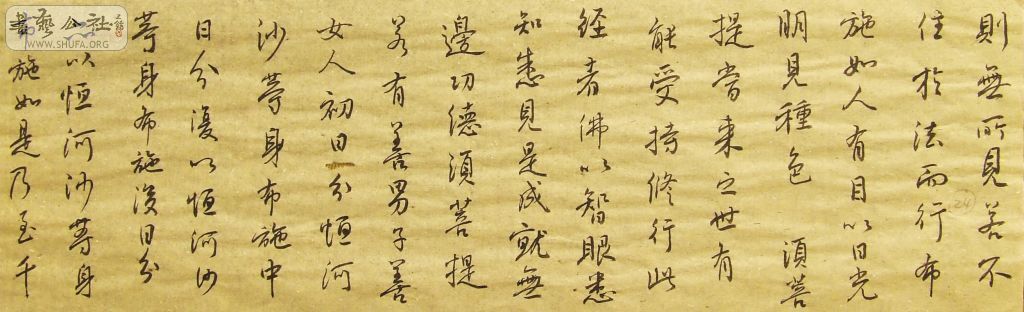 則無所見若不
住於法而行布
施如人有目以日光
明見種色 須菩
提當来之世有
能受持修行此
經者佛以智眼悉
知悉見是成就無
邊功德須菩提
若有善男子善
女人初日分恒河
沙等身布施中
日分復以恒河沙
等身布施後日分
以恒河沙等身
施如是乃至千
24
書藝公社
WWW.SHUFA.ORG